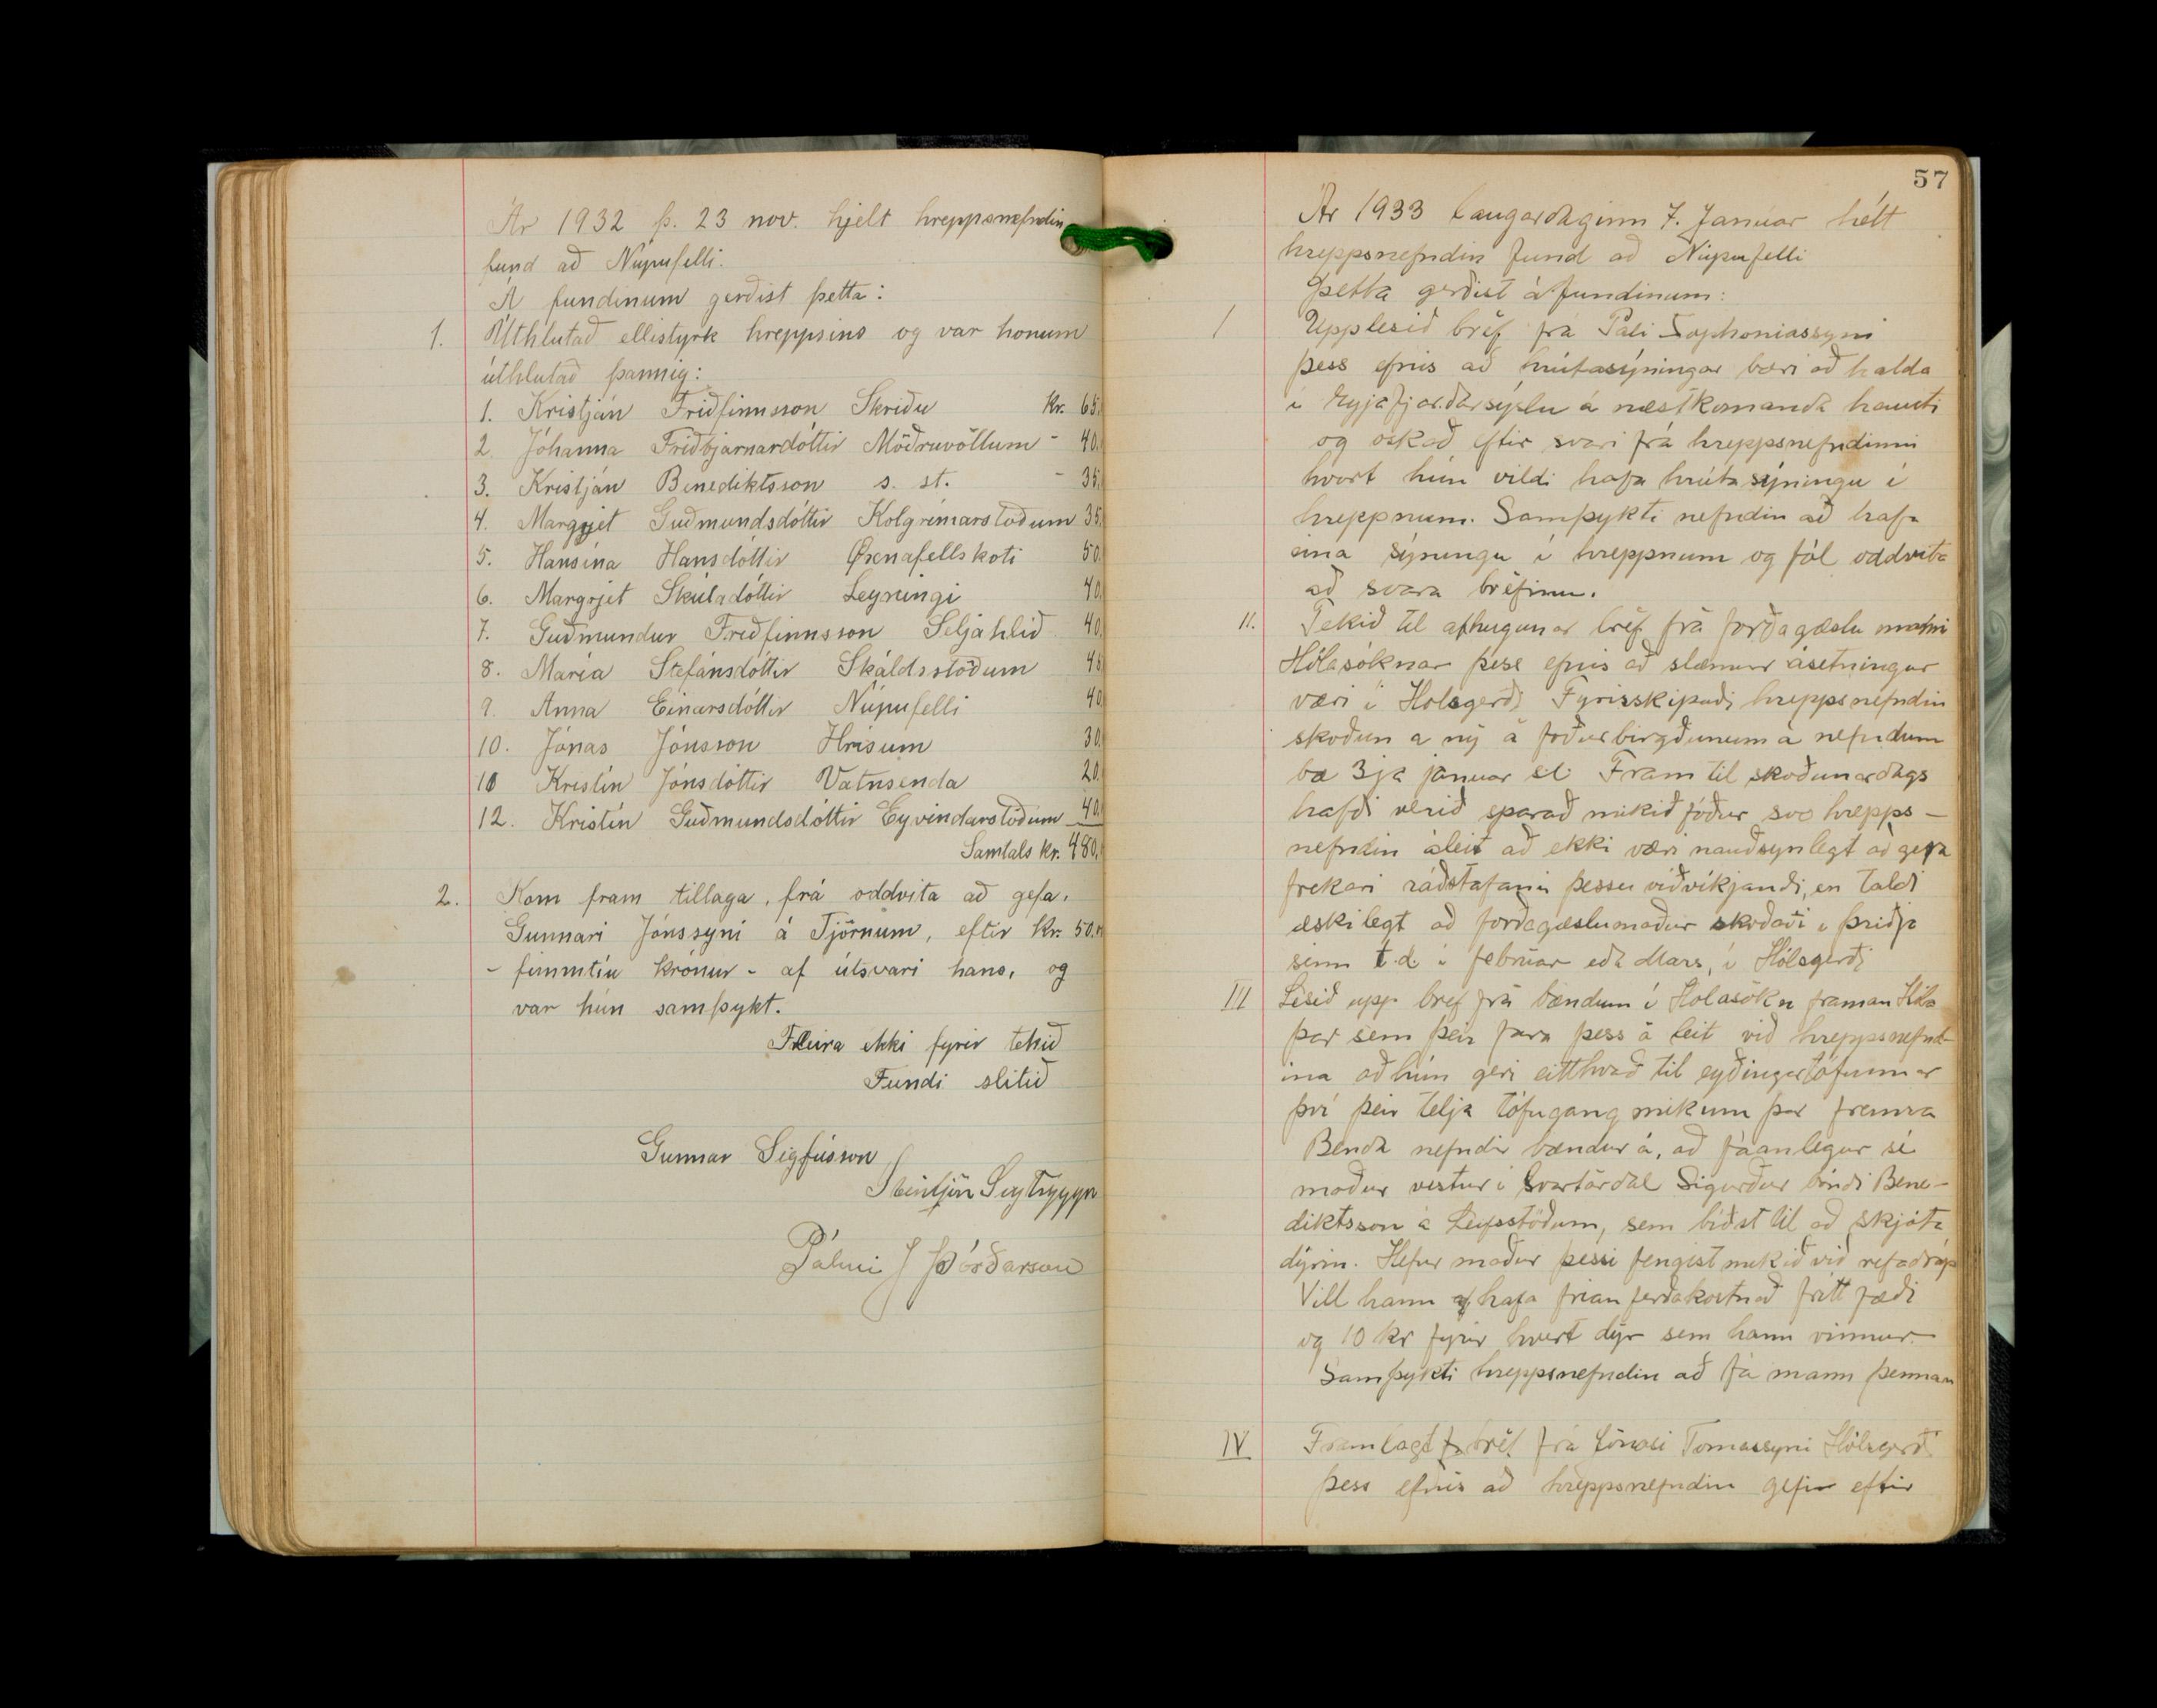 Ár 1932 þ. 23 nov. hjelt hreppsnefndin
fund að Núpufelli.
Á fundinum gerðist þetta:
1. Úthlutað ellistyrk hreppsins og var honum
úthlutað þannig:
1. Kristján Friðfinnsson Skriðu kr. 65.
2. Jóhanna Friðbjarnardóttir Möðruvöllum - 40.
3. Kristján Benediktsson s. st. - 35.
4. Margrjet Guðmundsdóttir Kolgrímarstöðum 35.
5. Hansína Hansdóttir Öxnafellskoti 50.
6. Margrjet Skúladóttir Leyningi 40.
7. Guðmundur Friðfinnsson Seljahlíð 40.
8. María Stefánsdóttir Skáldsstöðum 45
9. Anna Einarsdóttir Núpufelli 40.
10. Jónas Jónsson Hrísum 30.
10 Kristín Jónsdóttir Vatnsenda 20.
12. Kristín Guðmundsdóttir Eyvindarstöðum 40.
Samtals kr. 480.
2. Kom fram tillaga, frá oddvita að gefa,
Gunnari Jónssyni á Tjörnum, eftir kr. 50.
- fimmtíu krónur - af útsvari hans, og
var hún samþykt.
Fleira ekki fyrir tekið
Fundi slitið
Gunnar Sigfússon
Steinþór Sigtryggs
Pálmi J Þórðarson
57
Ár 1933 Laugardaginn 7. Janúar hélt
hreppsnefndin fund að Núpufelli
Þetta gerðist á fundinum:
1 Upplesið bréf frá Páli Sophoniassyni
þess efnis að hrútasýningar bæri að halda
í Eyjafjarðarsýslu á næstkomanda hausti
og óskað eftir svari frá hreppsnefndinni
hvort hún vildi hafa hrútasýningu í
hreppnum. Samþykti nefndin að hafa
eina sýningu í hreppnum og fól oddvita
að svara bréfinu.
II. Tekið til athugunar bréf frá forðagæslu manni
Hólasóknar þess efnis að slæmur ásetningur
væri í Hólsgerði Fyrirskipaði hreppsnefndin
skoðun a ný á fóðurbirgðunum á nefndum
bæ 3ja janúar sl. Fram til skoðunardags
hafði verið sparað mikið fóður svo hrepps-
nefndin áleit að ekki væri nauðsynlegt að gera
frekari ráðstafanir þessu viðvíkjandi, en taldi
æskilegt að forðagæslumaður skoðaði í þriðja
sinn t.d. í febrúar eða Mars, í Hólsgerði
III Lesið upp bref frá bændum í Hólasókn framan Hóla
þar sem þeir fara þess á leit við hreppsnefnd-
ina að hún geri eitthvað til eyðingar tófunnar
því þeir telja tófugang mikinn þar fremra
Benda nefndir bændur á, að fáanlegur sé
maður vestur í Svartárdal Sigurður bóndi Bene-
diktsson á Leifsstöðum, sem býðst til að skjóta
dýrin. Hefur maður þessi fengist mikið við refadráp
Vill hann hafa frían ferðakostnað frítt fæði
og 10 kr fyrir hvert dýr sem hann vinnur.
Samþykti hreppsnefndin að fá mann þennan
IV Framlagt bréf frá Jónasi Tomassyni Hólsgerði
þess efnis að hreppsnefndin gefi eftir